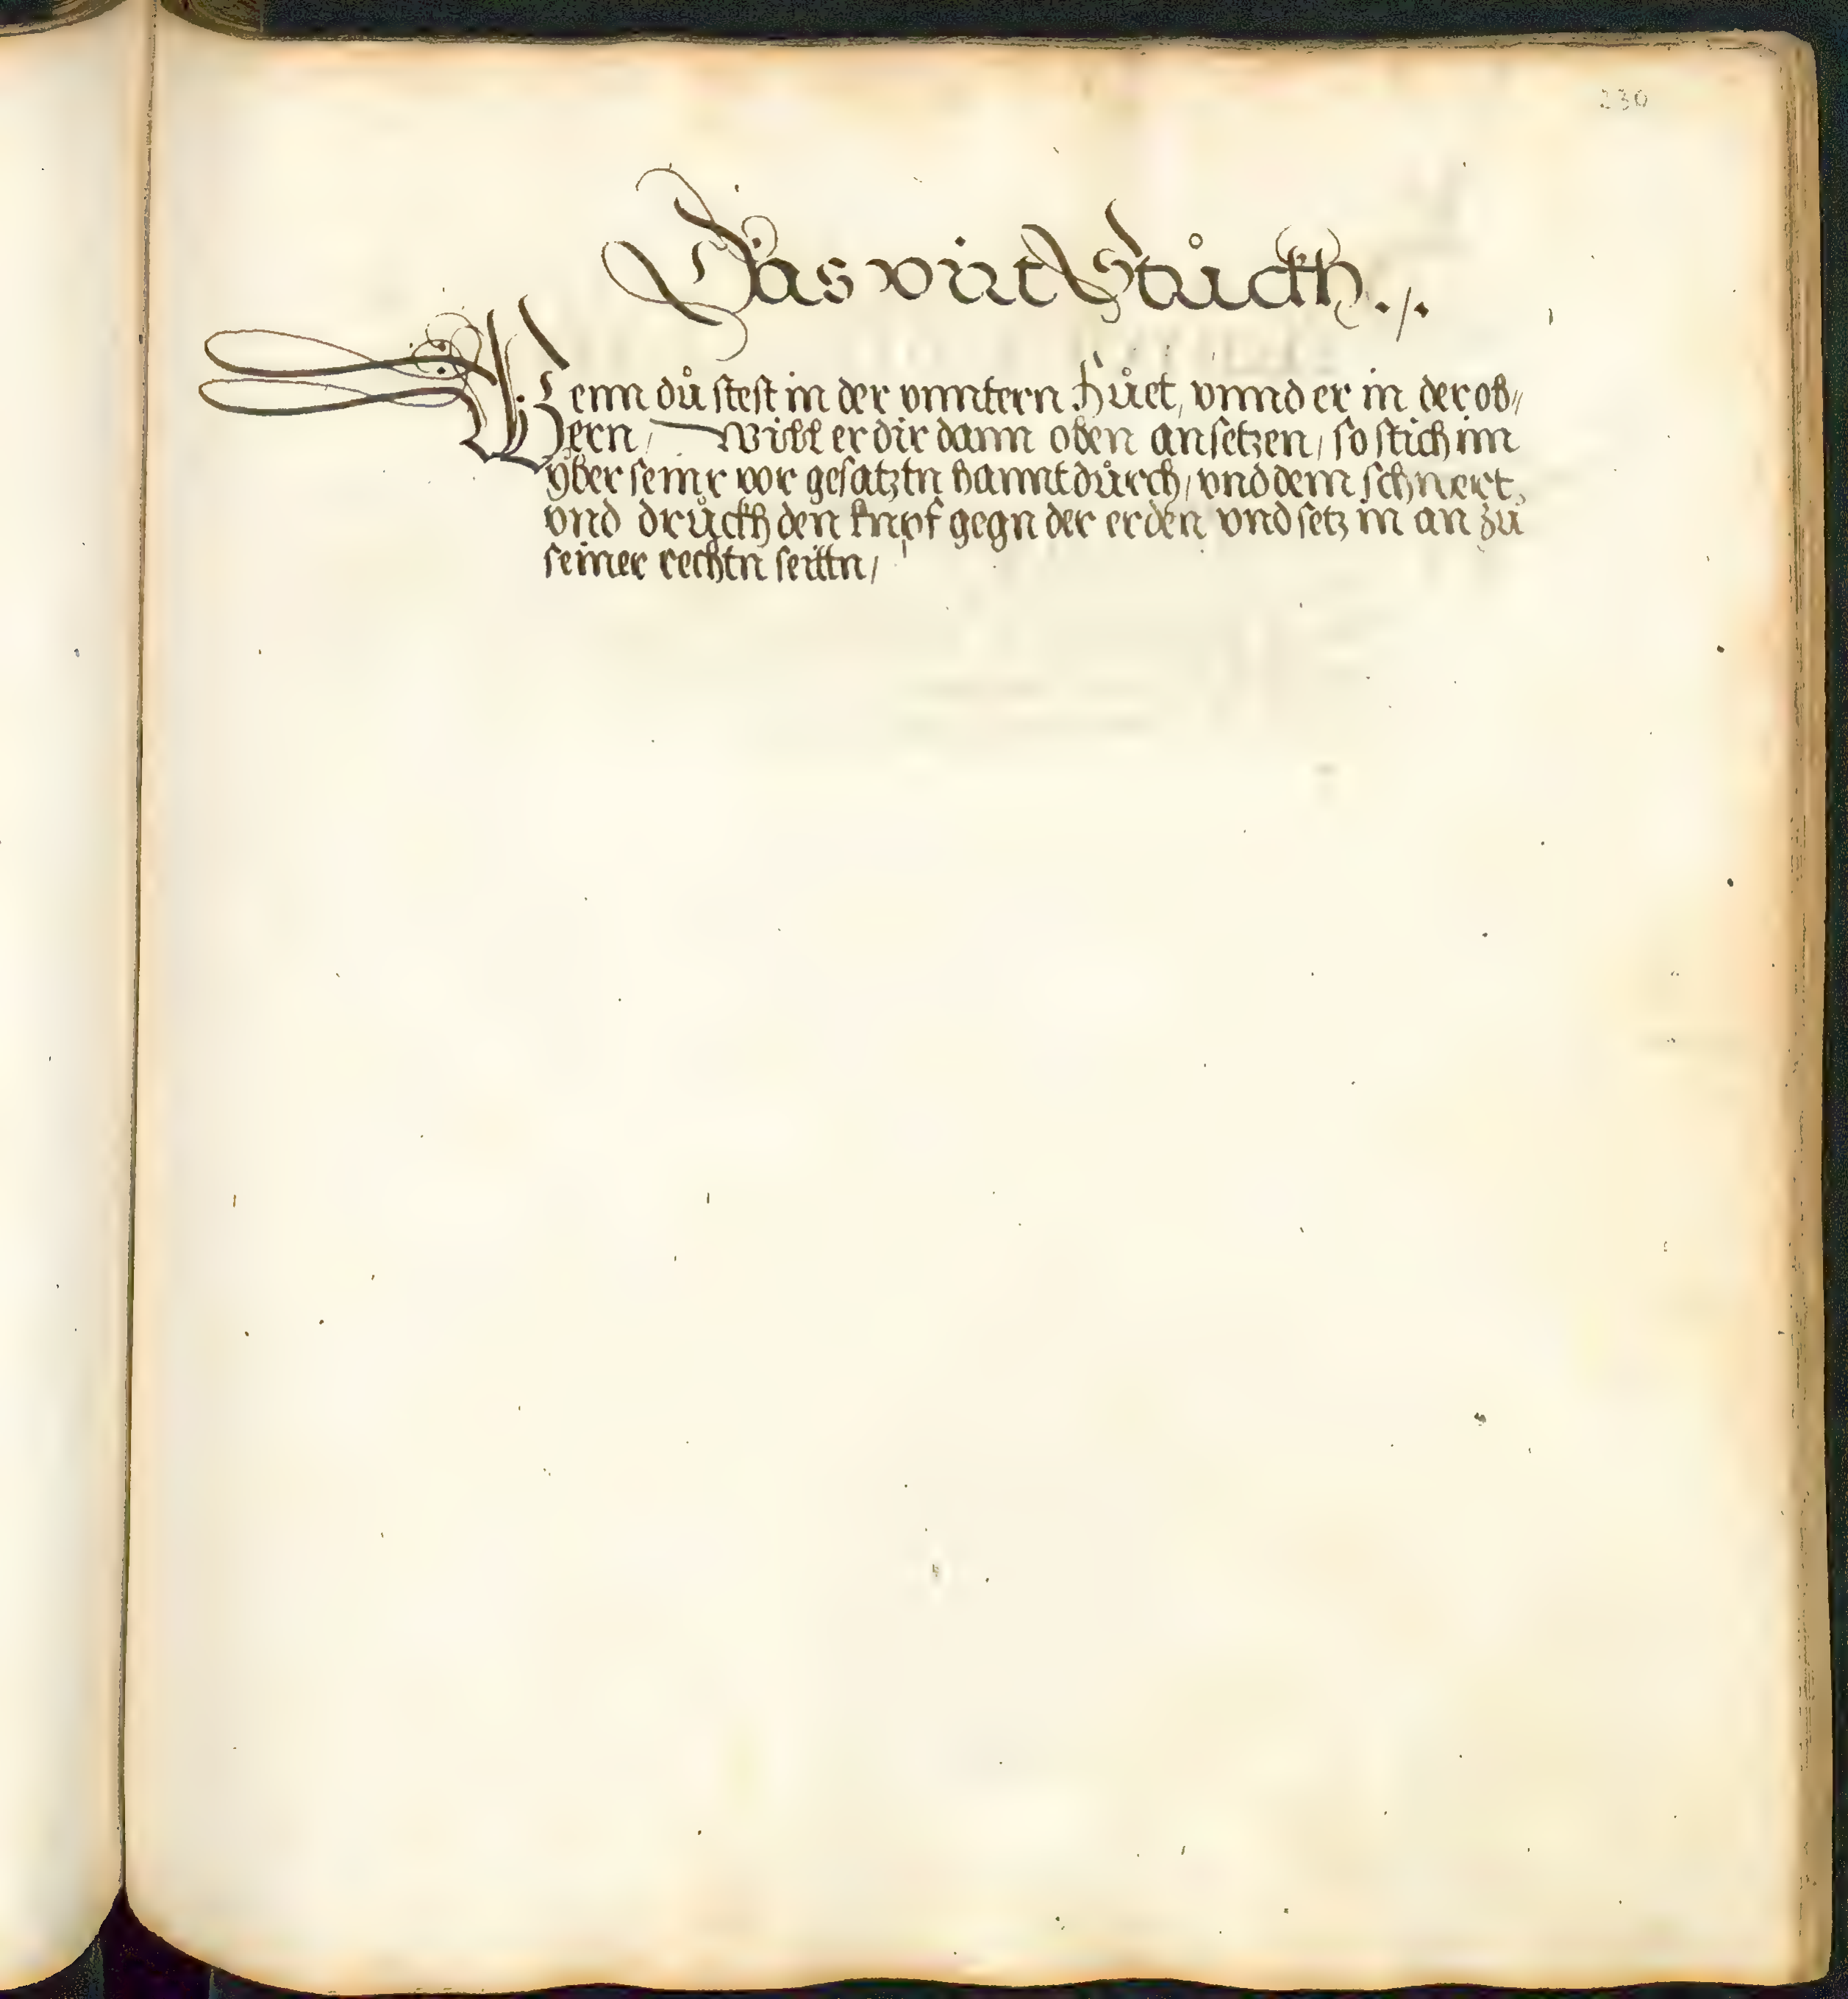 230
Das virt Stůckh ./.
Wenn dů stest in der vnntern Hůet, vnnd er in der ob〃
bern / will er dir dann oben ansetzen / so stich im
yber seinr vor gesatztn hannt důrch / vnd dem schwert,
vnd drůckh den knpf gegn der erden vnd setz in an zů
seiner rechtn seittn /